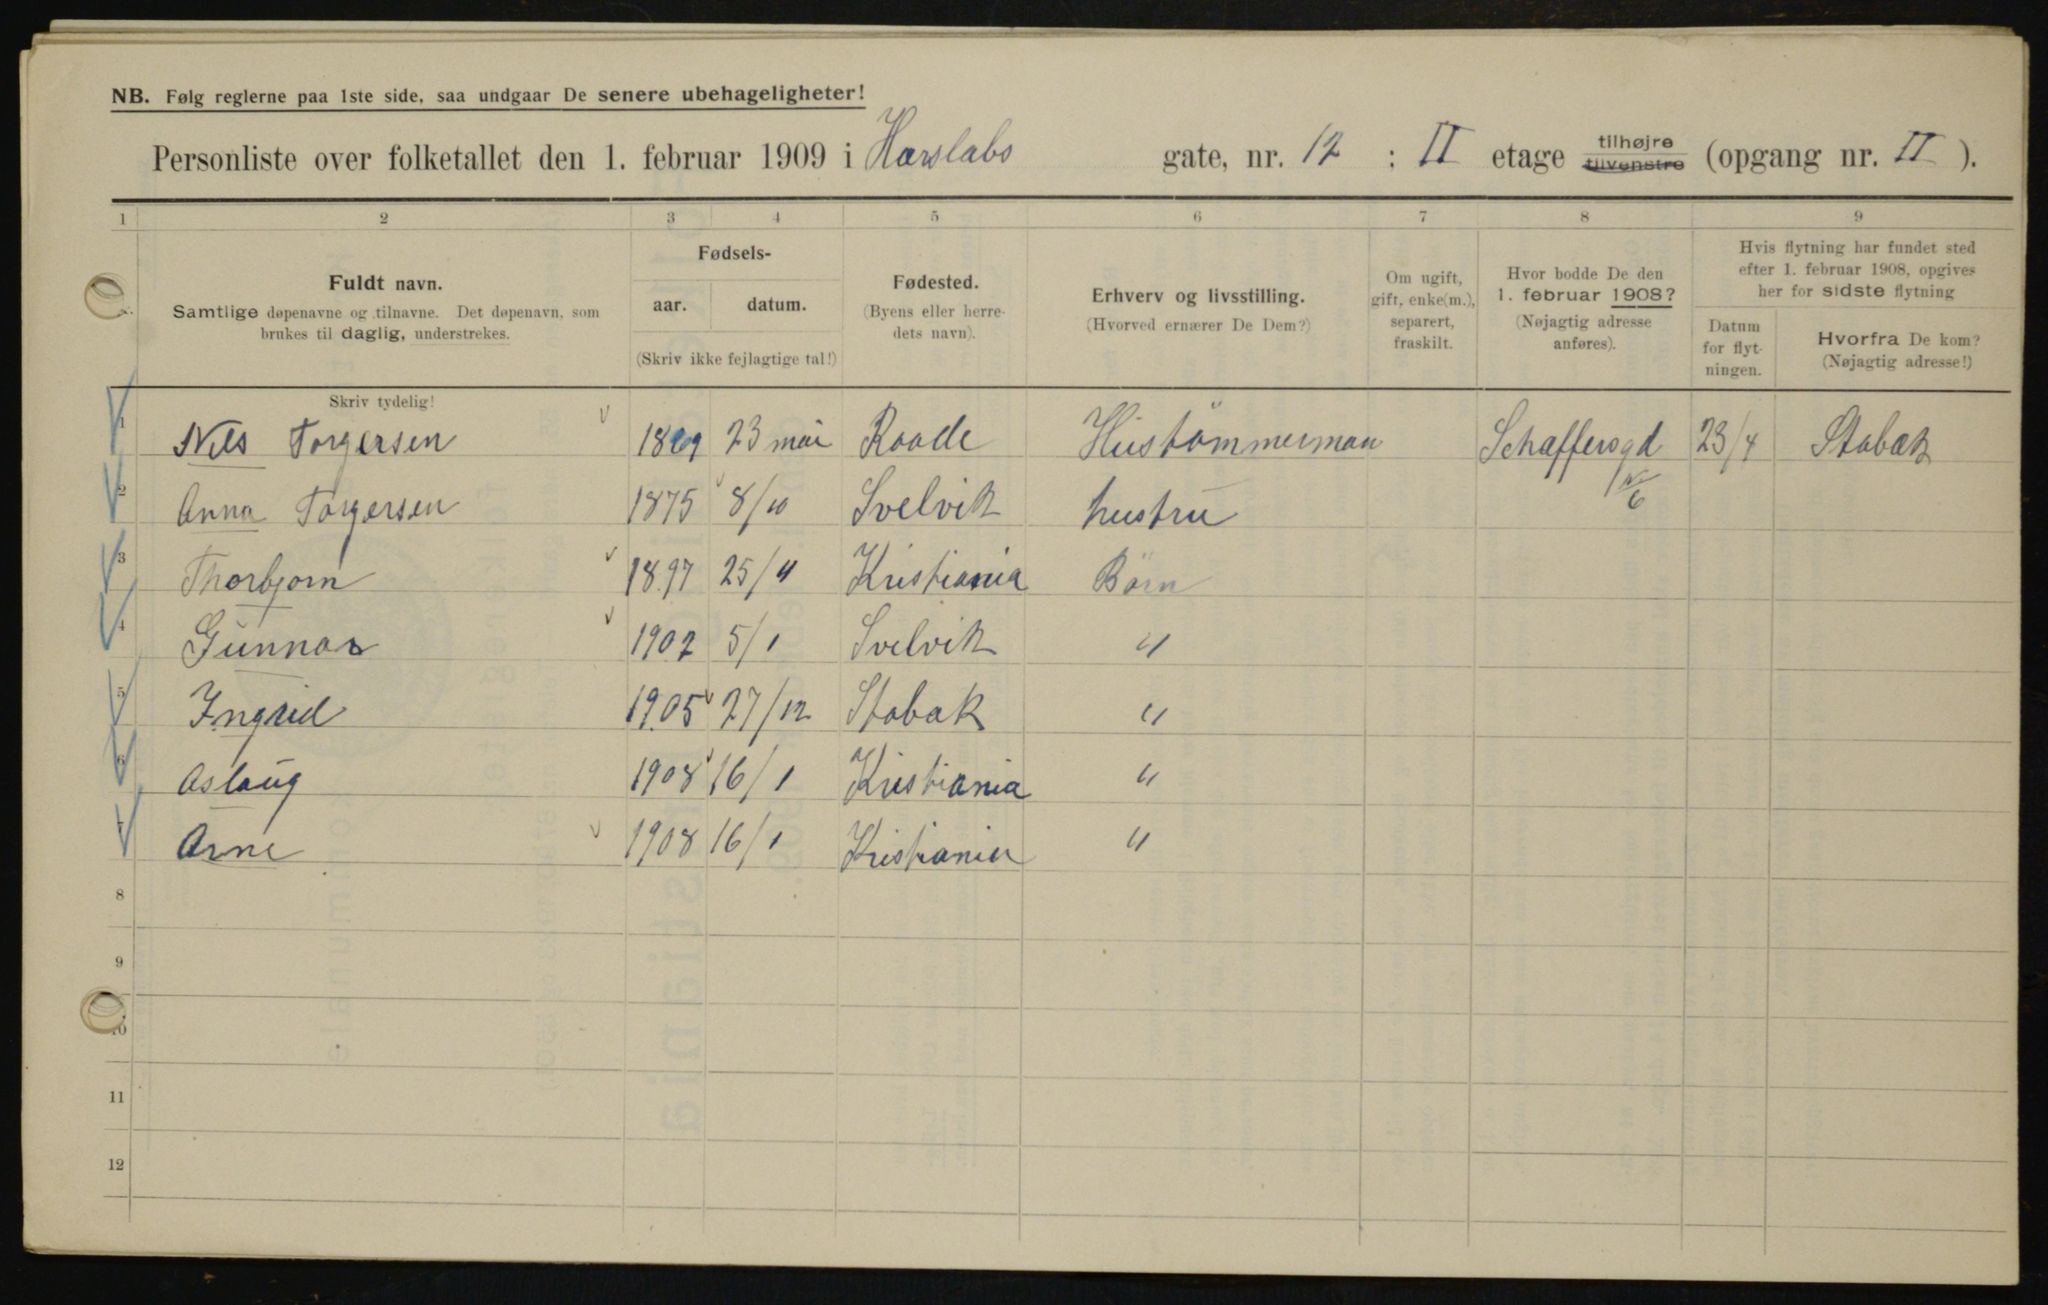 NB. Følg reglerne paa 1ste side, saa undgaar De senere ubehageligheter!
Personliste over folketallet den 1. februar 1909 i Harslabs gate, nr. 12 ; II etage tilhøjre tilvenstre (opgang nr. II ).
1 2 3 4 5 6 7 8 9
Fuldt navn.
Samtlige døpenavne og tilnavne. Det døpenavn, som brukes til daglig, understrekes.
Fødsels-
aar. datum.
(Skriv ikke fejlagtige tal!)
Fødested.
(Byens eller herredets navn).
Erhverv og livsstilling.
(Hvorved ernærer De Dem?)
Om ugift, gift, enke(m.), separert, fraskilt.
Hvor bodde De den 1. februar 1908?
(Nøjagtig adresse anføres).
Hvis flytning har fundet sted efter 1. februar 1908, opgives her for sidste flytning
Datum for flytningen.
Hvorfra De kom?
(Nøjagtig adresse!)
Skriv tydelig!
1 Nils Torgersen 1869 23 mai Raade Hustömmerman Schaffersgd 23/4 Stabæk
6
2 Anna Torgersen 1875 8/10 Svelvik hustru
3 Thorbjorn 1897 25/4 Kristiania Börn
4 Gunnar 1902 5/1 Svelvik "
5 Ingrid 1905 27/12 Stabak "
6 Aslaug 1908 16/1 Kristiania "
7 Arne 1908 16/1 Kristiania "
8
9
10
11
12